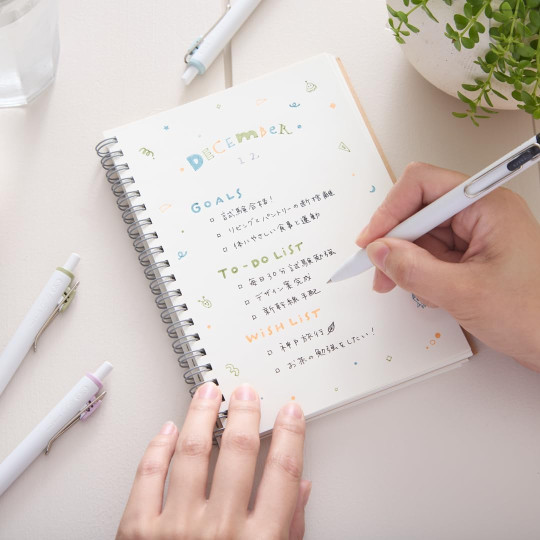 DECEMBER
12.
GOALS
□ 試験合格!
□ リビングとパントリーの断捨離
□ 体にやさしい食事と運動
TO-DO LIST
□ 毎日30分試験勉強
□ デザイン案完成
□ 新幹線手配
WISH LIST
□ 神戸旅行
□ お茶の勉強をしたい!